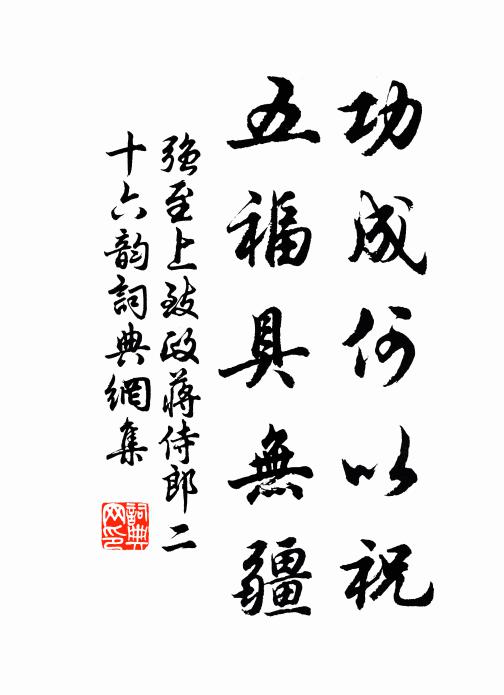 功成何以祝
五福具無疆
強至上致政蔣侍郎二
十六韵詞典網集
詞典
网印